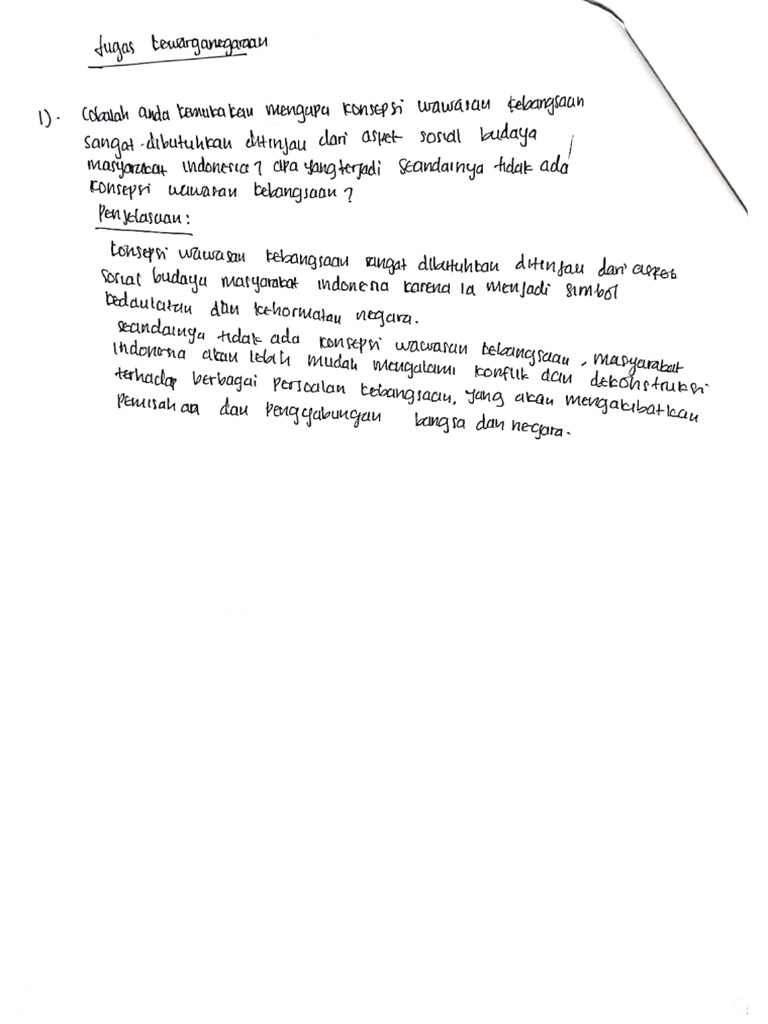 Tugas kewarganegaraan
1). Cobalah anda kemukakan mengapa konsepsi wawasan kebangsaan
sangat dibutuhkan ditinjau dari aspek sosial budaya
masyarakat indonesia? apa yang terjadi seandainya tidak ada
konsepsi wawasan kebangsaan?
Penjelasaan:
konsepsi wawasan kebangsaan sangat dibutuhkan ditinjau dari aspek
sosial budaya masyarakat indonesia karena ia menjadi simbol
kedaulatan dan kehormatan negara.
seandainya tidak ada konsepsi wawasan kebangsaan, masyarakat
indonesia akan lebih mudah mengalami konflik dan dekonstruksi
terhadap berbagai persoalan kebangsaan, yang akan mengakibatkan
pemisahan dan penggabungan bangsa dan negara.